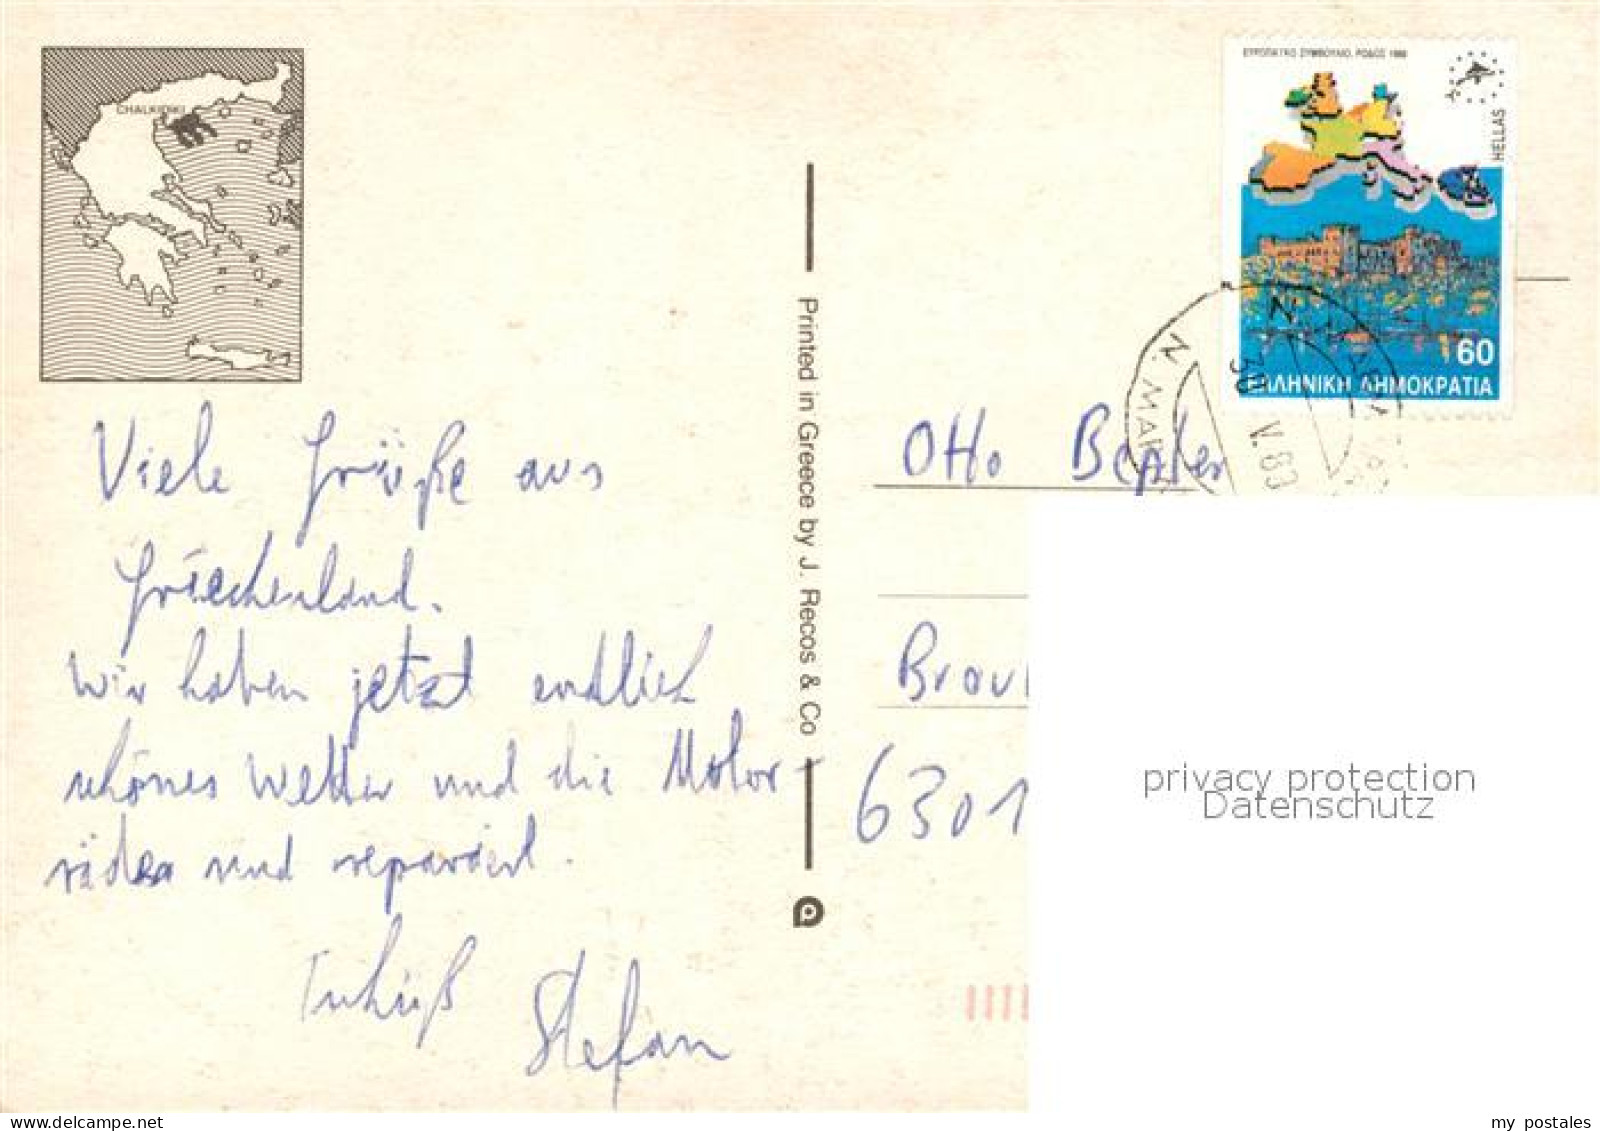 CHALKIDIKI
Viele Grüße aus
Griechenland.
Wir haben jetzt endlich
schönes Wetter und die Motor-
räder sind repariert.
Tschüß
Stefan
Printed in Greece by J. Recos & Co
ΕΥΡΩΠΑΪΚΟ ΣΥΜΒΟΥΛΙΟ, ΡΟΔΟΣ 1988
HELLAS
60
ΕΛΛΗΝΙΚΗ ΔΗΜΟΚΡΑΤΙΑ
30 V.89
N. ΜΑΡ
Otto
Brau
6301
privacy protection
Datenschutz
my postales